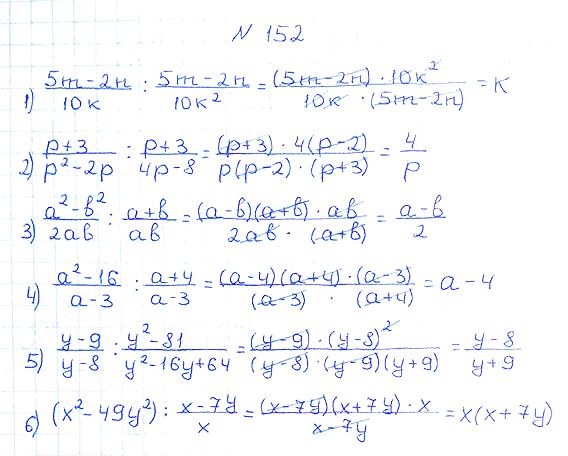 N 152
1) (5m-2n)/(10k) : (5m-2n)/(10k²) = ((5m-2n)·10k²)/(10k·(5m-2n)) = k
2) (p+3)/(p²-2p) : (p+3)/(4p-8) = ((p+3)·4(p-2))/(p(p-2)·(p+3)) = 4/p
3) (a²-b²)/(2ab) : (a+b)/(ab) = ((a-b)(a+b)·ab)/(2ab·(a+b)) = (a-b)/2
4) (a²-16)/(a-3) : (a+4)/(a-3) = ((a-4)(a+4)·(a-3))/((a-3)·(a+4)) = a-4
5) (y-9)/(y-8) : (y²-81)/(y²-16y+64) = ((y-9)·(y-8)²)/((y-8)·(y-9)(y+9)) = (y-8)/(y+9)
6) (x²-49y²) : (x-7y)/x = ((x-7y)(x+7y)·x)/(x-7y) = x(x+7y)